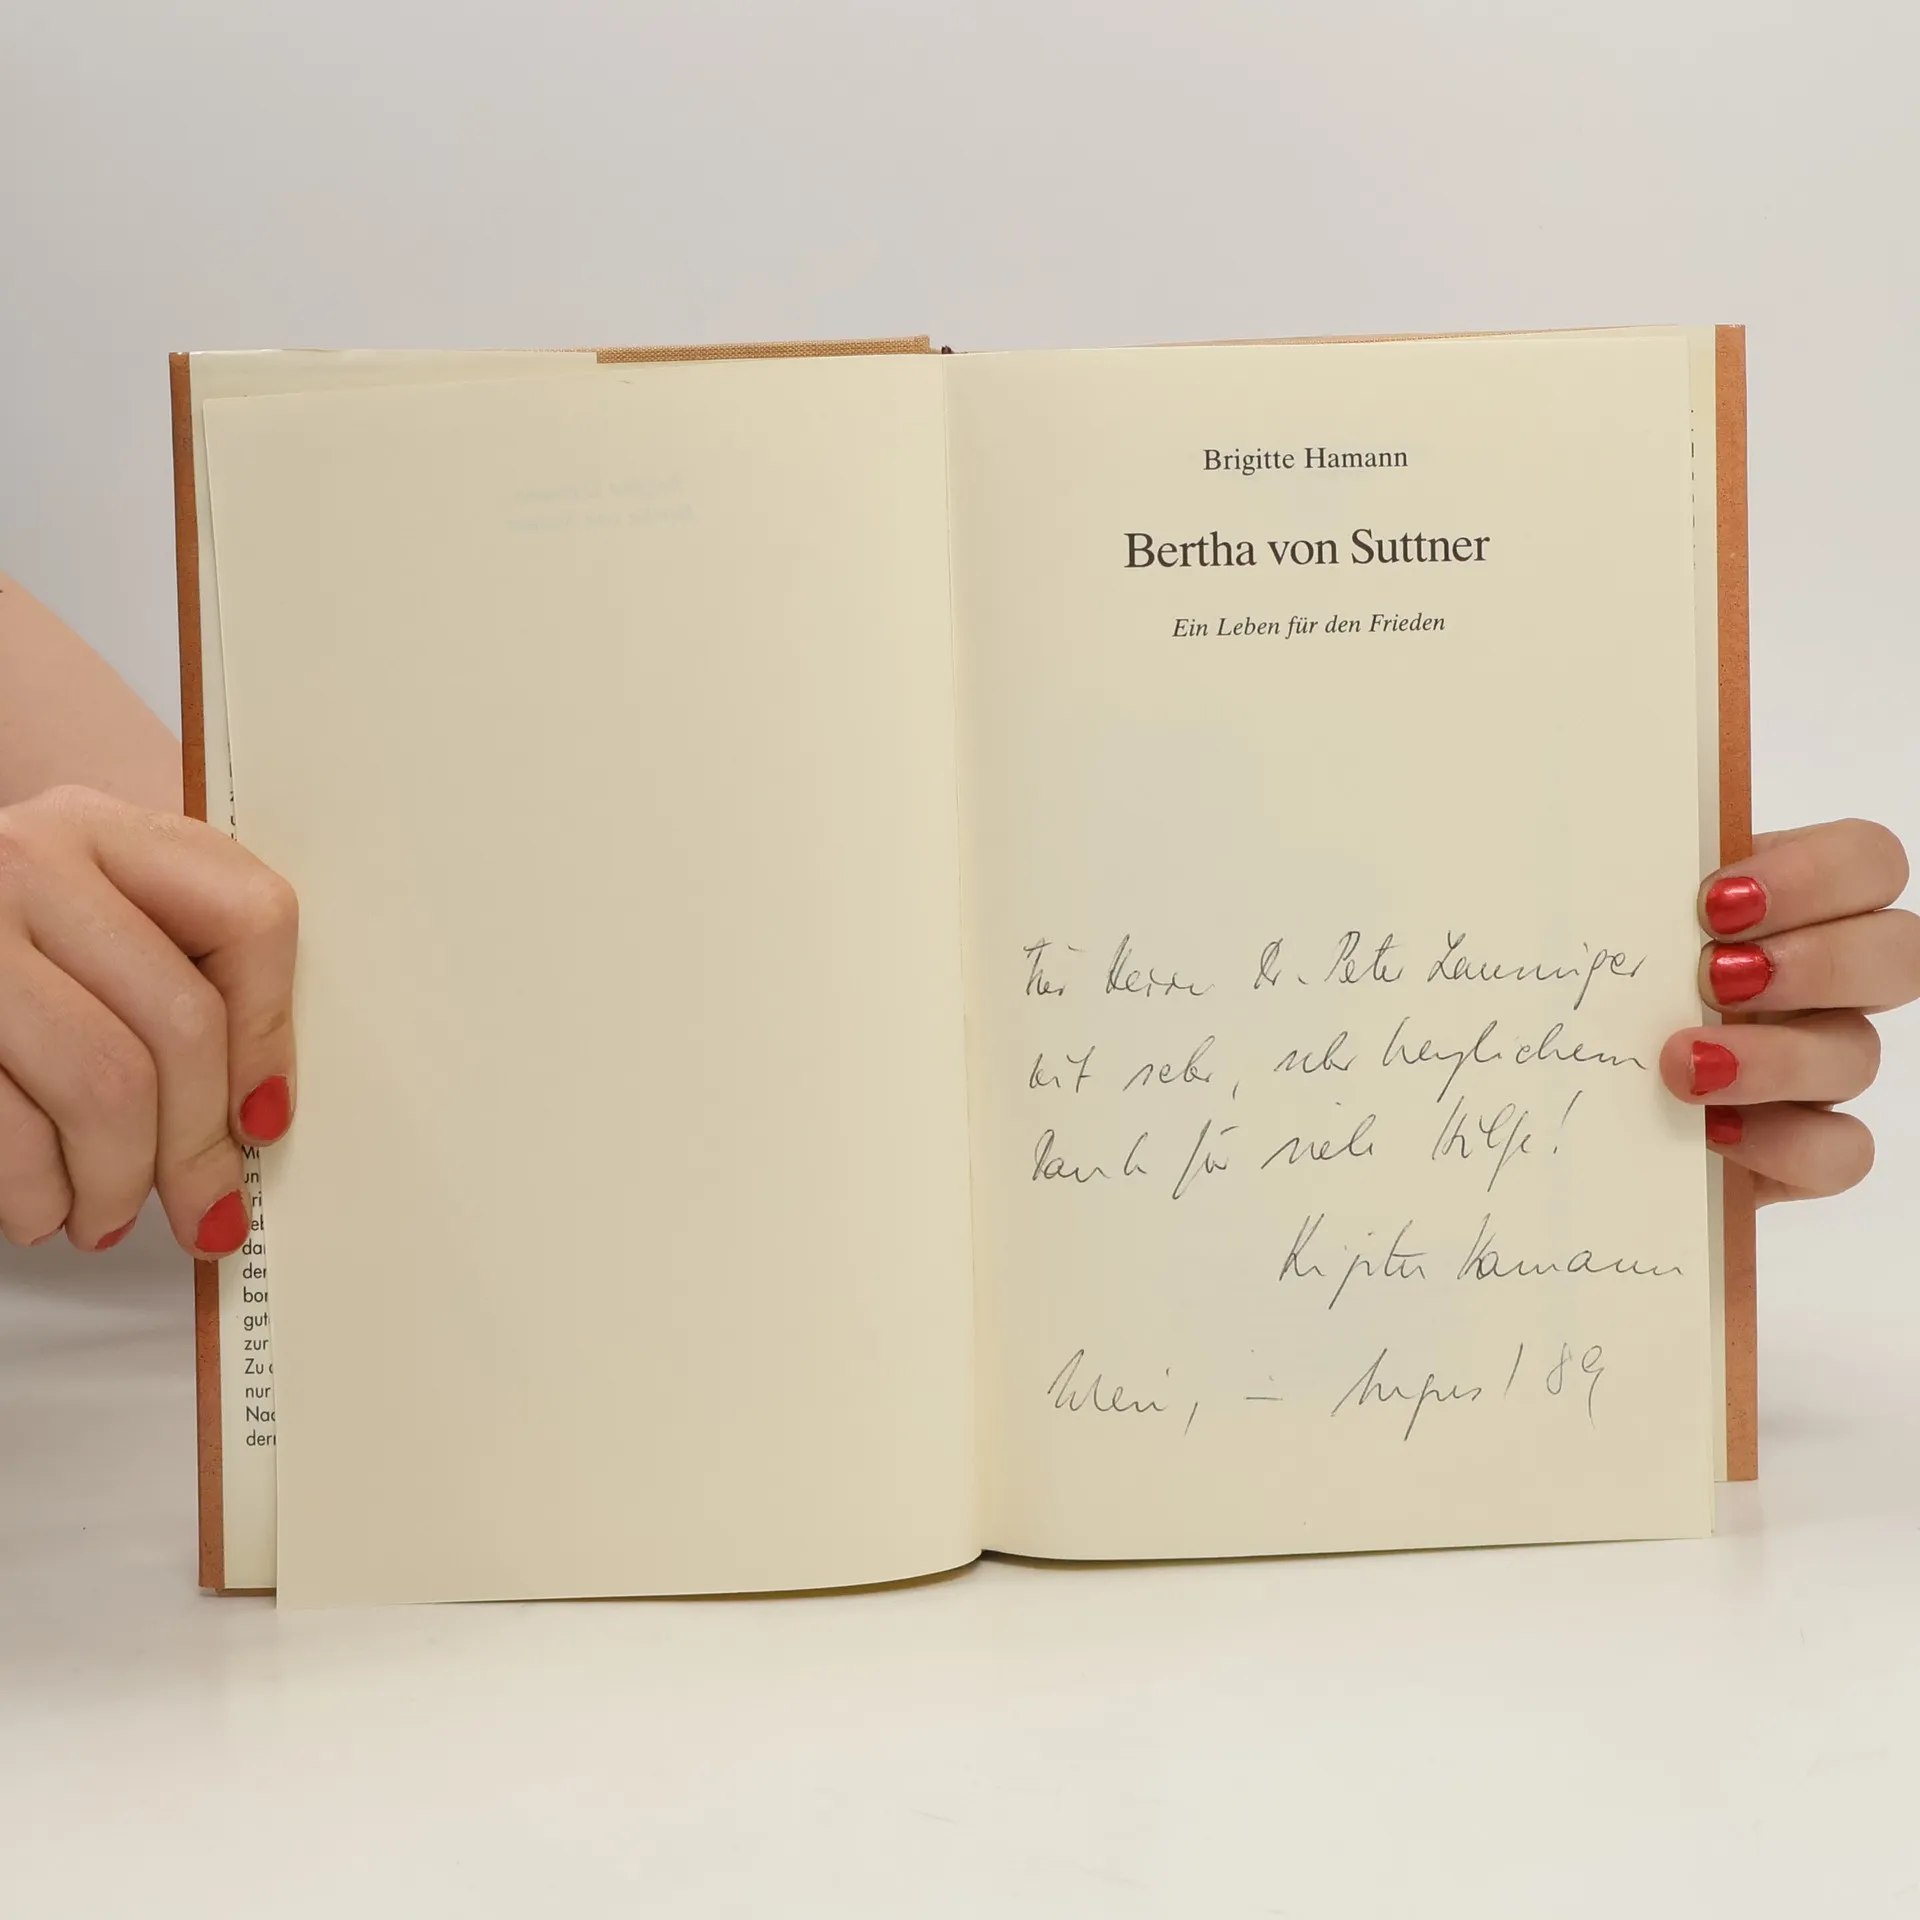 Me
un
ri
eb
da
der
bor
gut
zur
Zu d
nur
Nac
dern
Brigitte Hamann
Bertha von Suttner
Ein Leben für den Frieden
Für Herrn Dr. Peter
mit sehr, sehr herzlichem
Dank für viele Hilfe!
Brigitte Hamann
Wien, im August 89